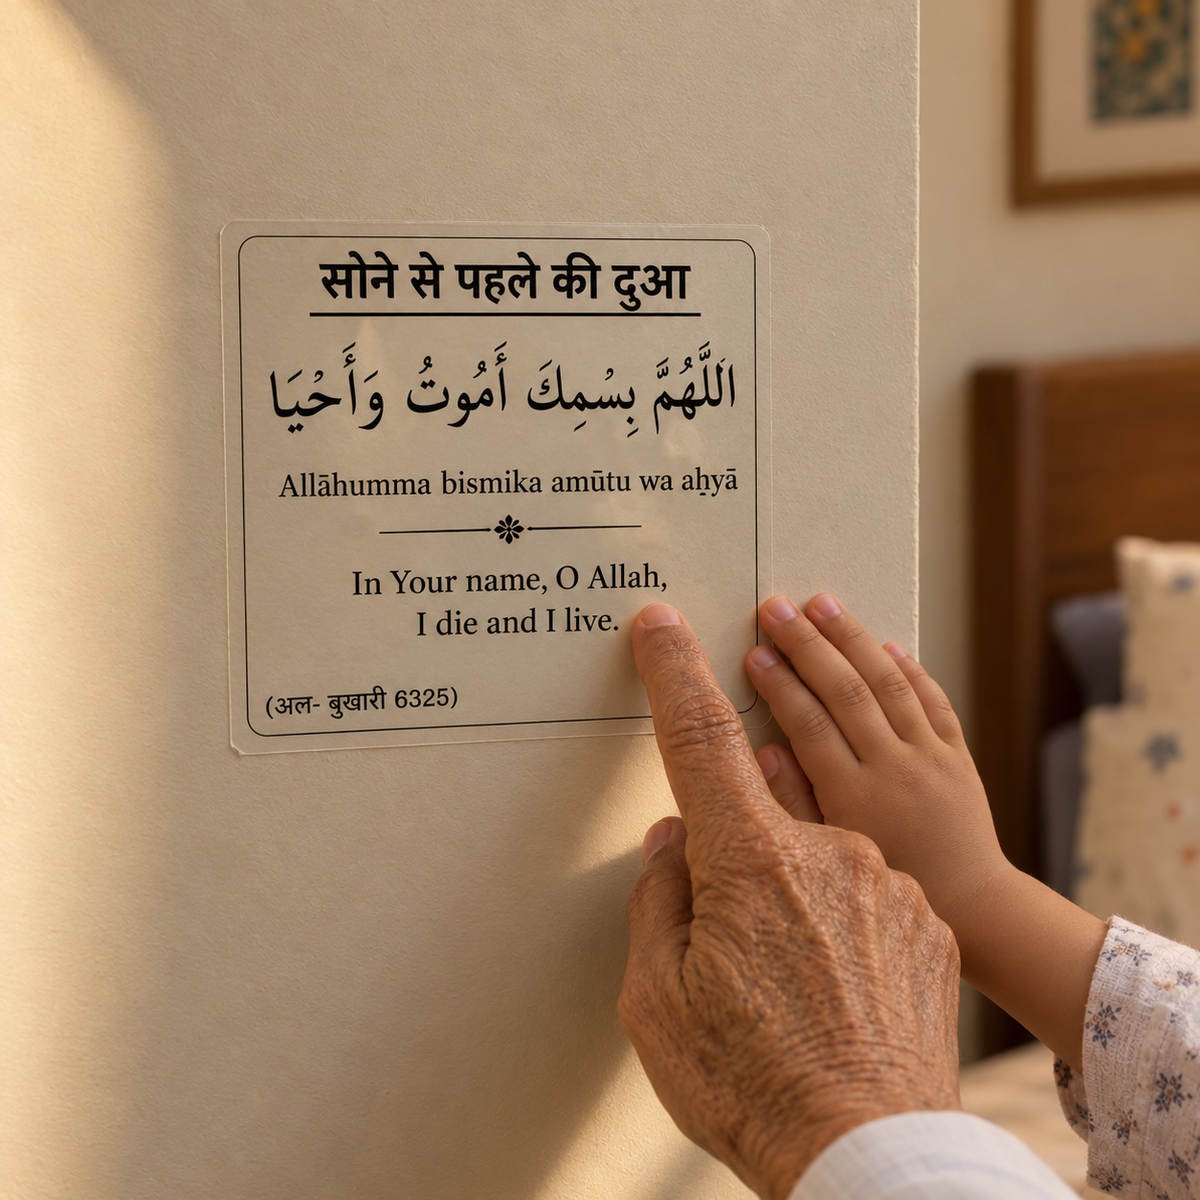 सोने से पहले की दुआ
اَللَّهُمَّ بِسْمِكَ أَمُوتُ وَأَحْيَا
Allāhumma bismika amūtu wa aḥyā
In Your name, O Allah,
I die and I live.
(अल- बुखारी 6325)